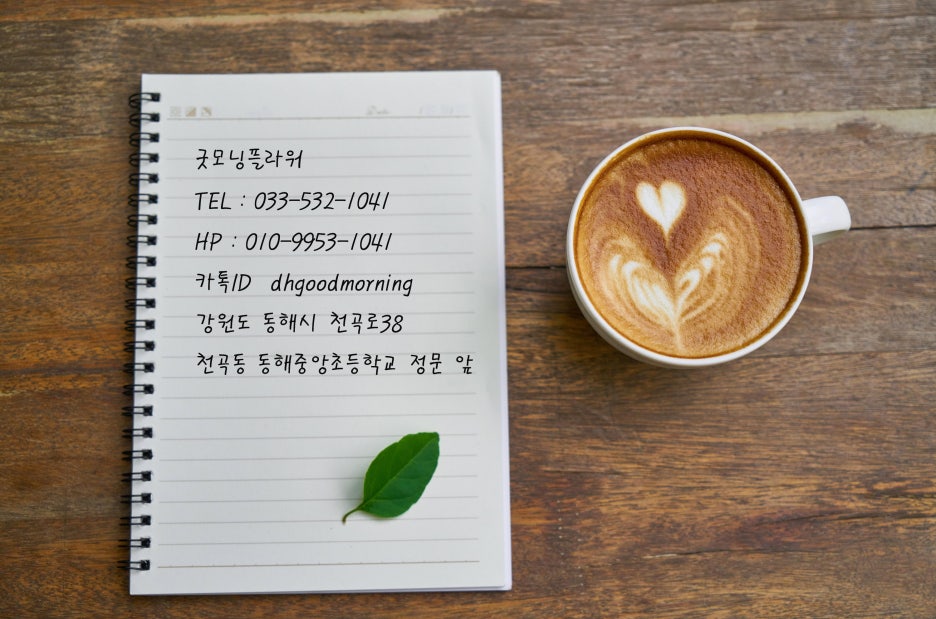 굿모닝플라워
TEL : 033-532-1041
HP : 010-9953-1041
카톡ID dhgoodmorning
강원도 동해시 천곡로38
천곡동 동해중앙초등학교 정문 앞